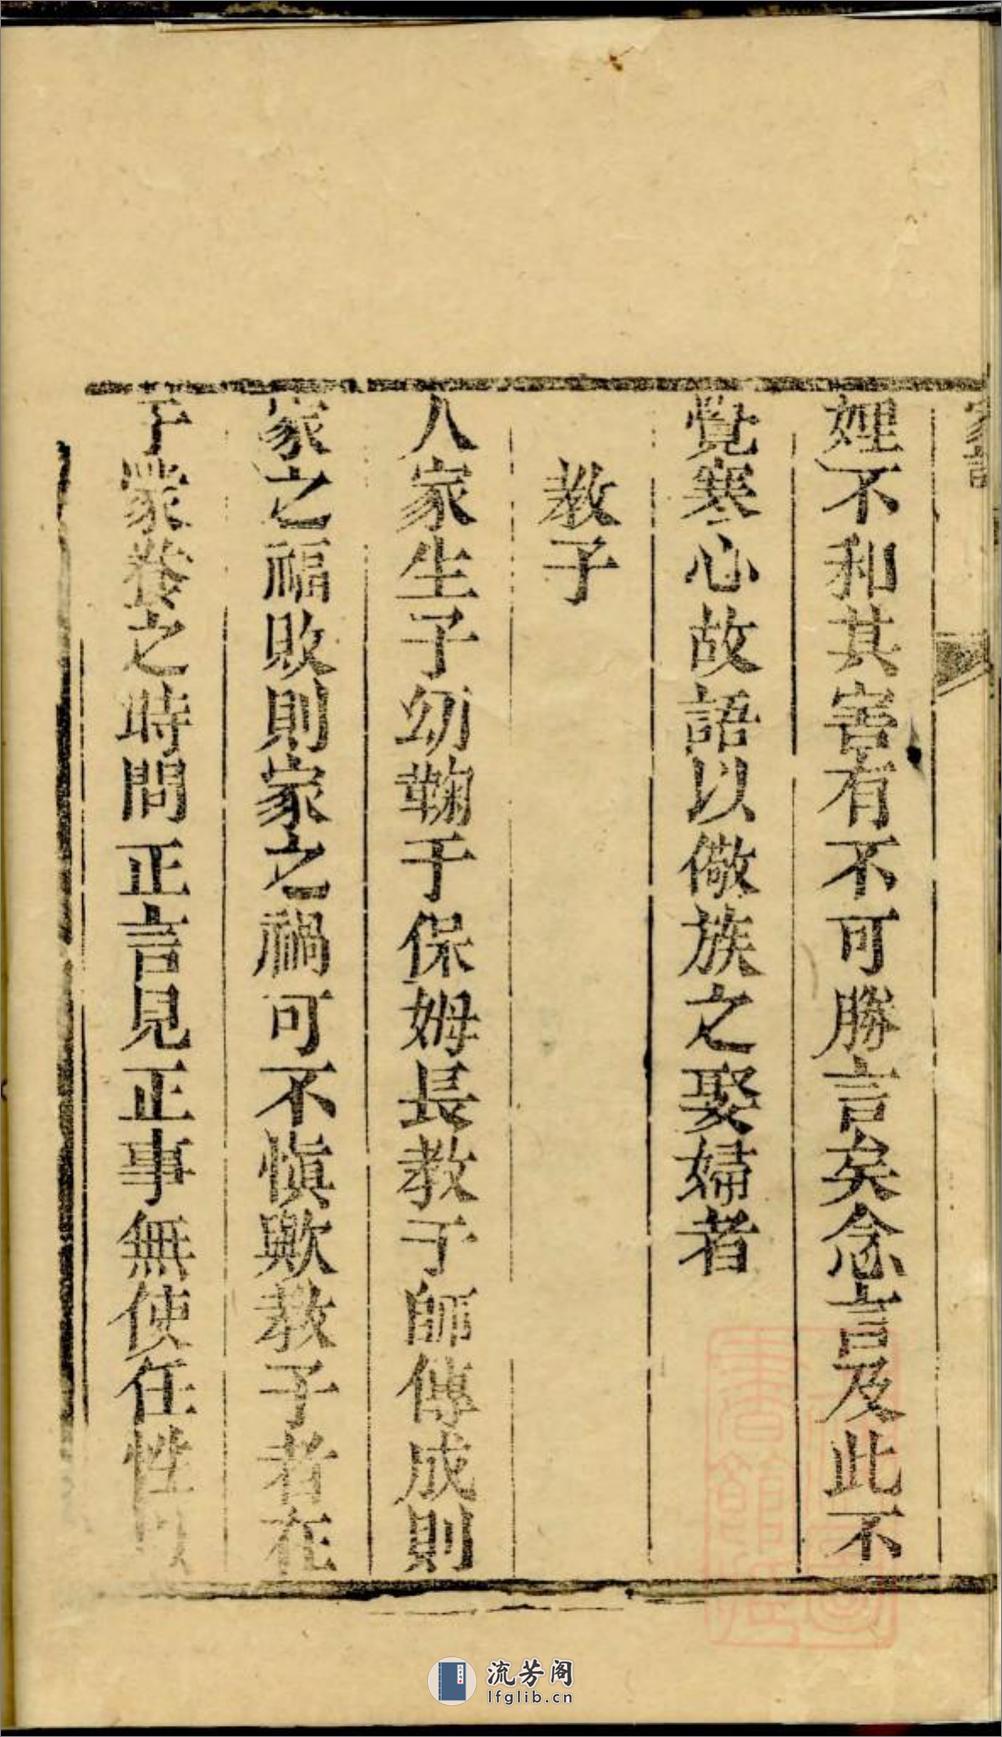 家訓
娌不和其害有不可勝言矣念言及此不
覺寒心故語以儆族之娶婦者
教子
人家生子幼鞠于保姆長教于師傅成則
家之福敗則家之禍可不慎歟教子者在
于蒙養之時問正言見正事無使任性以
流芳阁
lfglib.cn